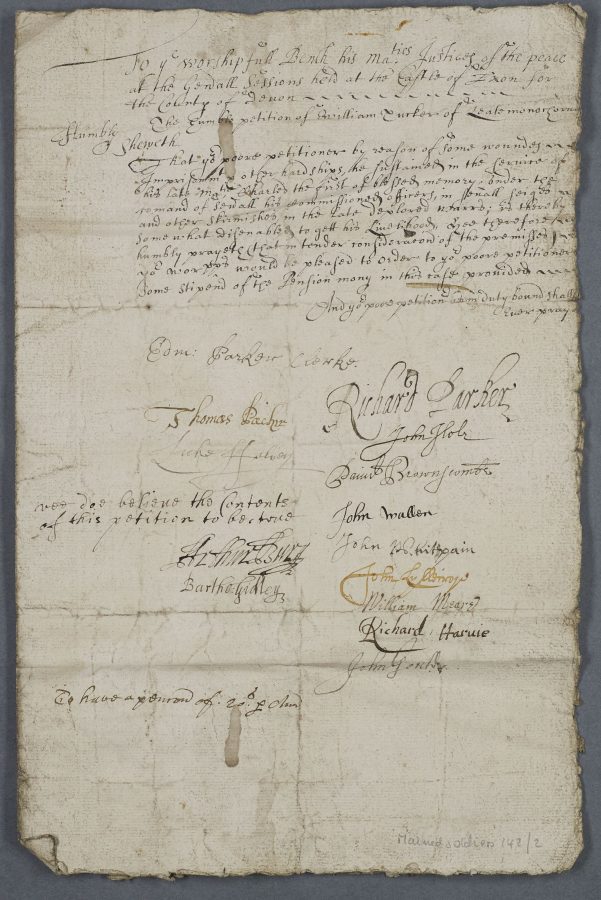 To ye worshipfull Bench his ma:ties Justices of the peace
at the Genall Sessions held at the Castle of Exon for
the County of Devon
The humble petition of William Tucker of
Humbly Sheweth
That yor poore petitioner by reason of some woundes
Imprisonmt & other hardships, he sustained in the service of
his late matie Charles the first of blessed memory under the
comand of sevall his commissioned officers, in sevall seiges
and other skirmishes in the late deplored warrs, is thereby
somewhat disenabled to gett his Livelihood, who therefore
humbly prayeth that in tender consideracon of the premisses
yor worpps would be pleased to order to yor poore petitioner
some stipend of the Pension mony in this case provided
And yor poore petitionr as in duty bound shall
Ever pray
Edm: Parker Clerke.
Richard Parker
Thomas
John
Luke
Brownscombe
wee doe believe the Contents
of this petition to bee true
John Wallen
John Kittpain
Arthur Burt
John
Barthe: Gidley
William Meare
Richard Harvie
John
To have a pencon of 20s p Ann
Maimed soldiers 142/2